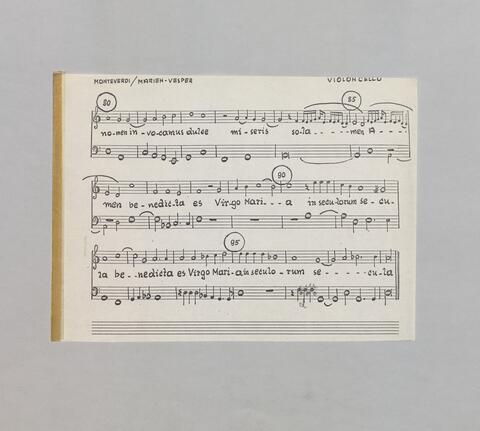 MONTEVERDI/MARIEN-VESPER VIOLONCELLO
80 85
no-men in-vo-camus dulce mi-seris so-la----men A--
90
men be-nedic-ta es Virgo Mari---a in seculorum se-cu-
95
la be-nedicta es Virgo Mari-a in seculo-rum se----cu-la